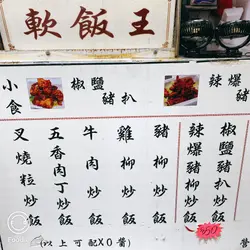 軟飯王
小食
椒鹽豬扒
辣爆
叉燒粒炒飯
五香肉丁炒飯
牛肉炒飯
雞柳炒飯
豬柳炒飯
辣爆豬柳炒飯
椒鹽豬扒炒飯
(以上可配XO醬)
營